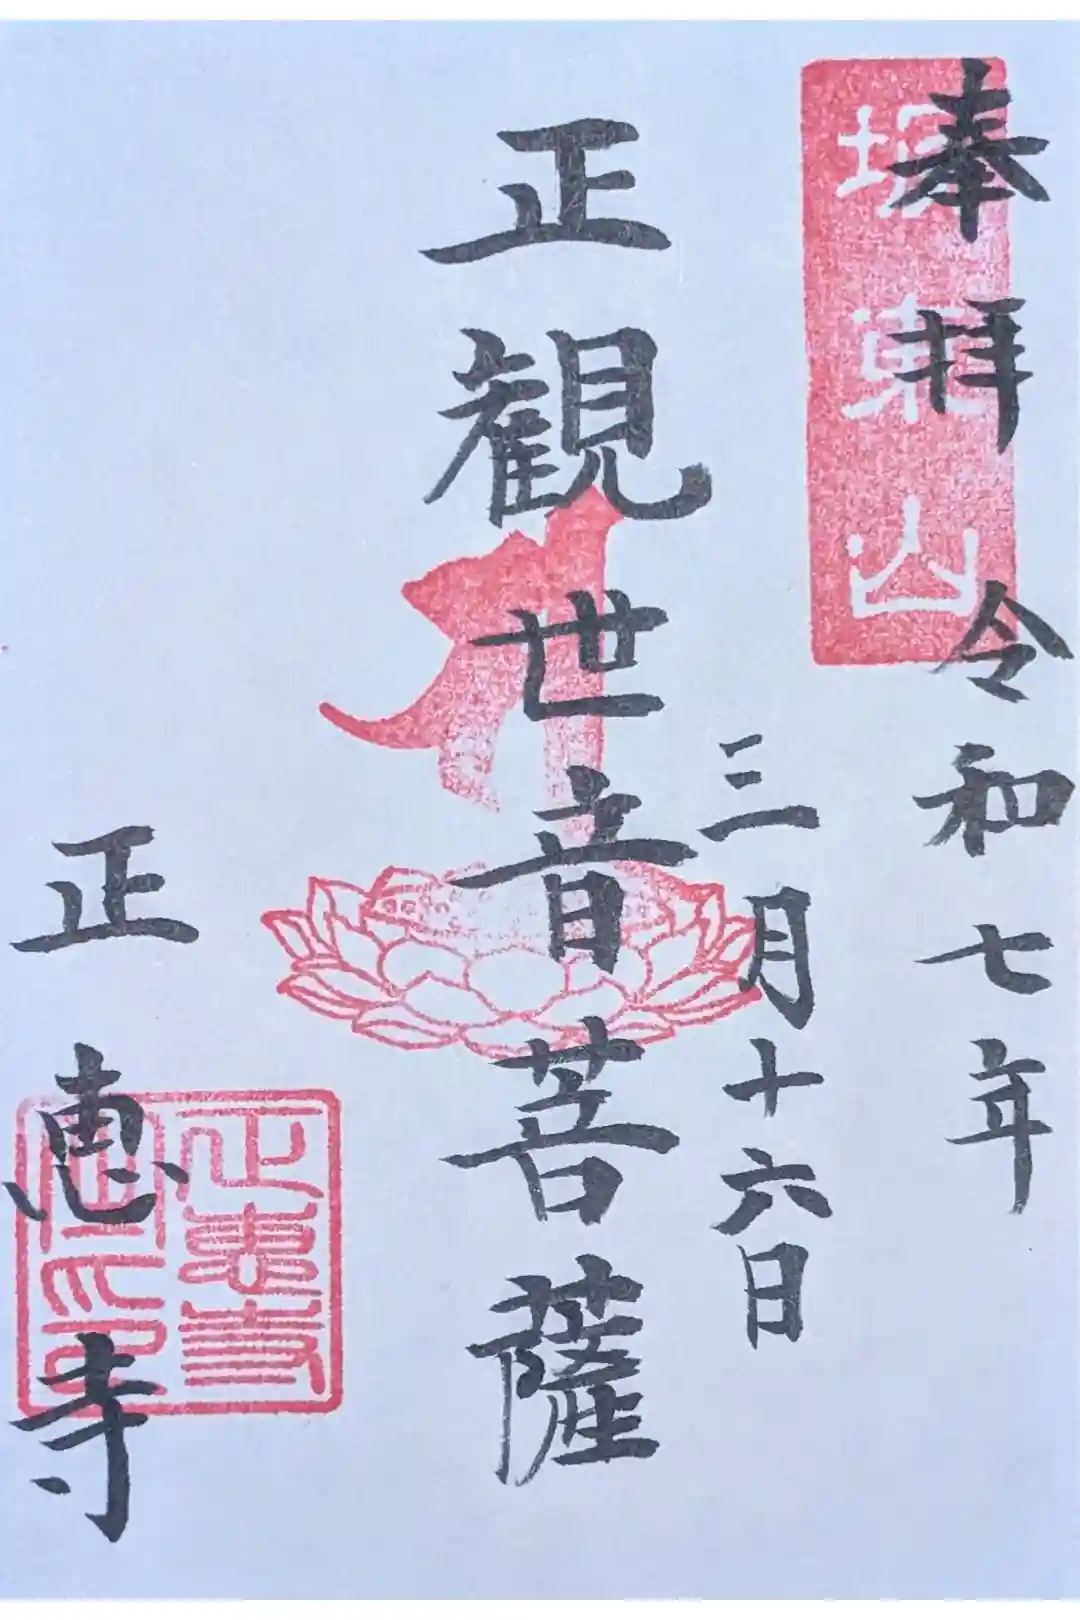 奉拝
坂東山
令和七年
三月十六日
正観世音菩薩
正恵寺